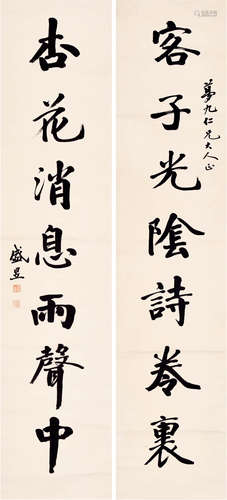 客子光陰詩卷裏
夢九仁兄大人正
杏花消息雨聲中
盛昱